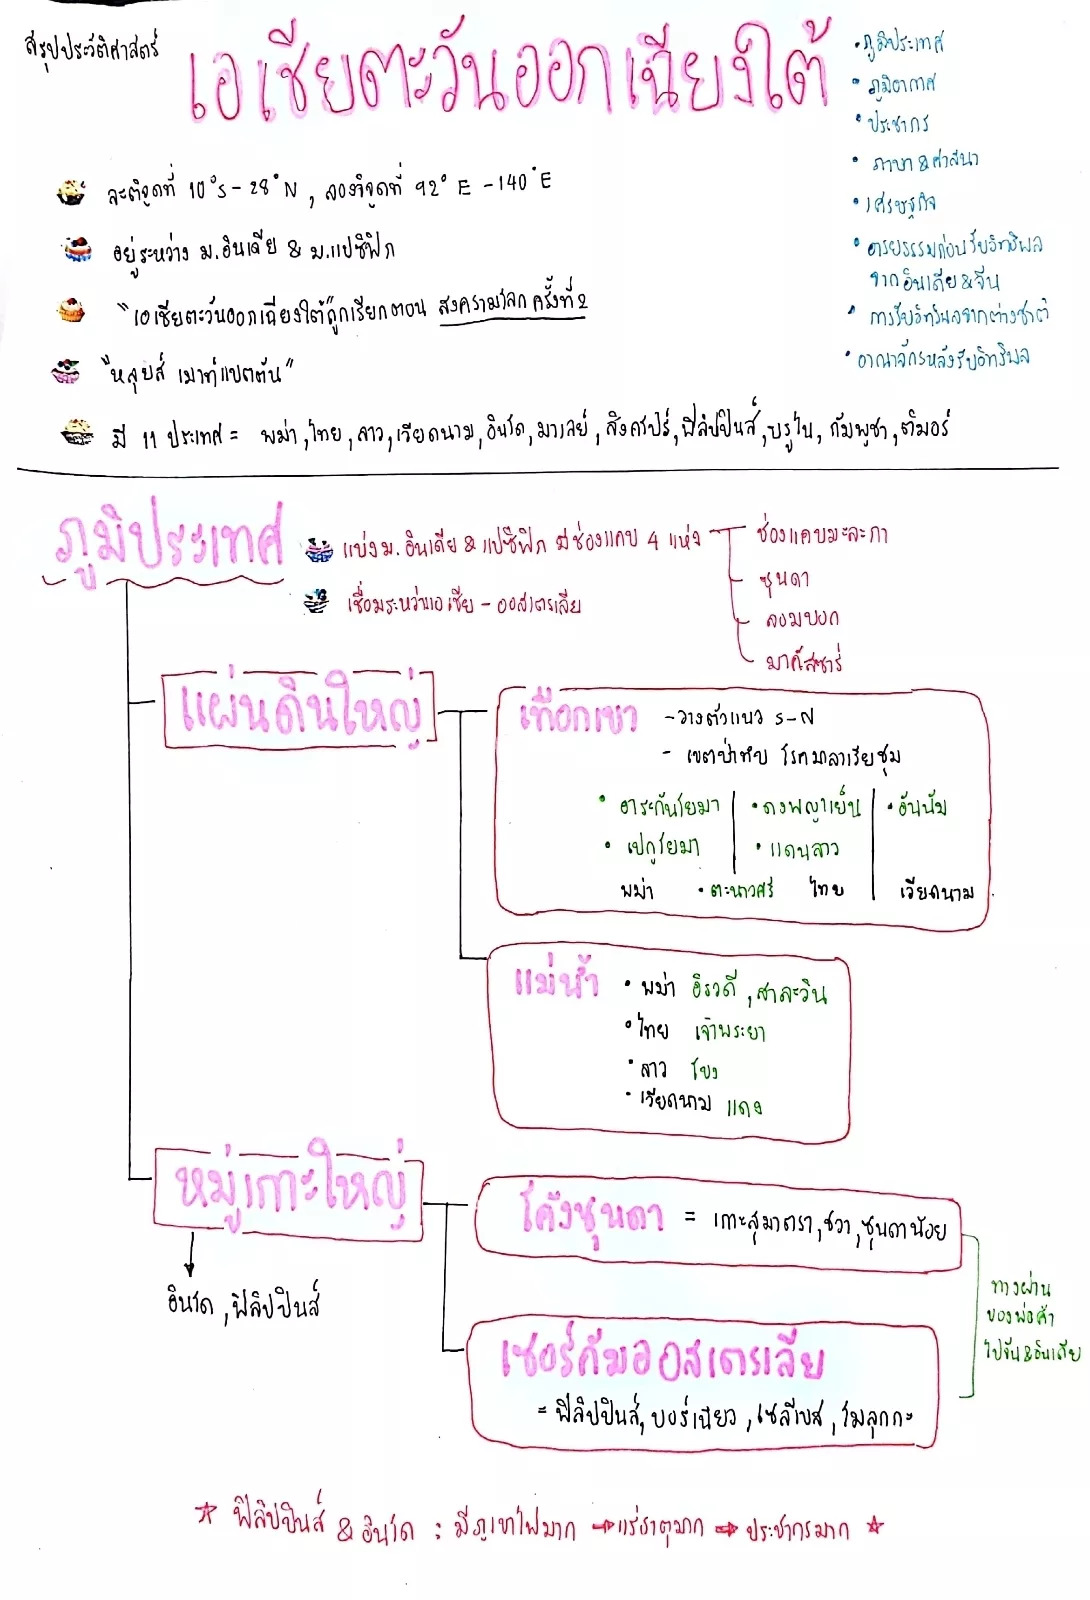 สรุปประวัติศาสตร์
เอเชียตะวันออกเฉียงใต้
• ภูมิประเทศ
• ภูมิอากาศ
• ประชากร
• ภาษา & ศาสนา
• เศรษฐกิจ
• อารยธรรมก่อนรับอิทธิพล
จากอินเดีย & จีน
• การรับอิทธิพลจากต่างชาติ
• อาณาจักรหลังรับอิทธิพล
ละติจูดที่ 10°S - 28°N , ลองจิจูดที่ 92°E - 140°E
อยู่ระหว่าง ม.อินเดีย & ม.แปซิฟิก
"เอเชียตะวันออกเฉียงใต้" ถูกเรียกตอน สงครามโลกครั้งที่ 2
"หลุยส์ เมาท์แบตตัน"
มี 11 ประเทศ = พม่า, ไทย, ลาว, เวียดนาม, อินโด, มาเลย์, สิงคโปร์, ฟิลิปปินส์, บรูไน, กัมพูชา, ติมอร์
ภูมิประเทศ
แบ่ง ม.อินเดีย & แปซิฟิก มีช่องแคบ 4 แห่ง
ช่องแคบมะละกา
ซุนดา
ลอมบอก
มาคัสซาร์
เชื่อมระหว่างเอเชีย - ออสเตรเลีย
แผ่นดินใหญ่
เทือกเขา - วางตัวแนว S-N
- เขตป่าทึบ โรคมาลาเรียชุม
• อาระกันโยมา • ดงพญาเย็น • อันนัม
• เปกูโยมา • แดนลาว
พม่า • ตะนาวศรี ไทย เวียดนาม
แม่น้ำ • พม่า อิรวดี, สาละวิน
• ไทย เจ้าพระยา
• ลาว โขง
• เวียดนาม แดง
หมู่เกาะใหญ่
อินโด, ฟิลิปปินส์
โค้งซุนดา = เกาะสุมาตรา, ชวา, ซุนดาน้อย
ทางผ่าน
ของพ่อค้า
ไปจีน & อินเดีย
เซอร์คัมออสเตรเลีย
= ฟิลิปปินส์, บอร์เนียว, เซลีเบส, โมลุกกะ
☆ ฟิลิปปินส์ & อินโด : มีภูเขาไฟมาก → แร่ธาตุมาก → ประชากรมาก ☆